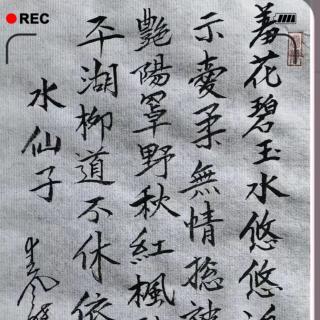 REC
羞花碧玉水悠悠
示爱柔無情總
艷陽罩野秋紅楓
平湖柳道不休依
水仙子